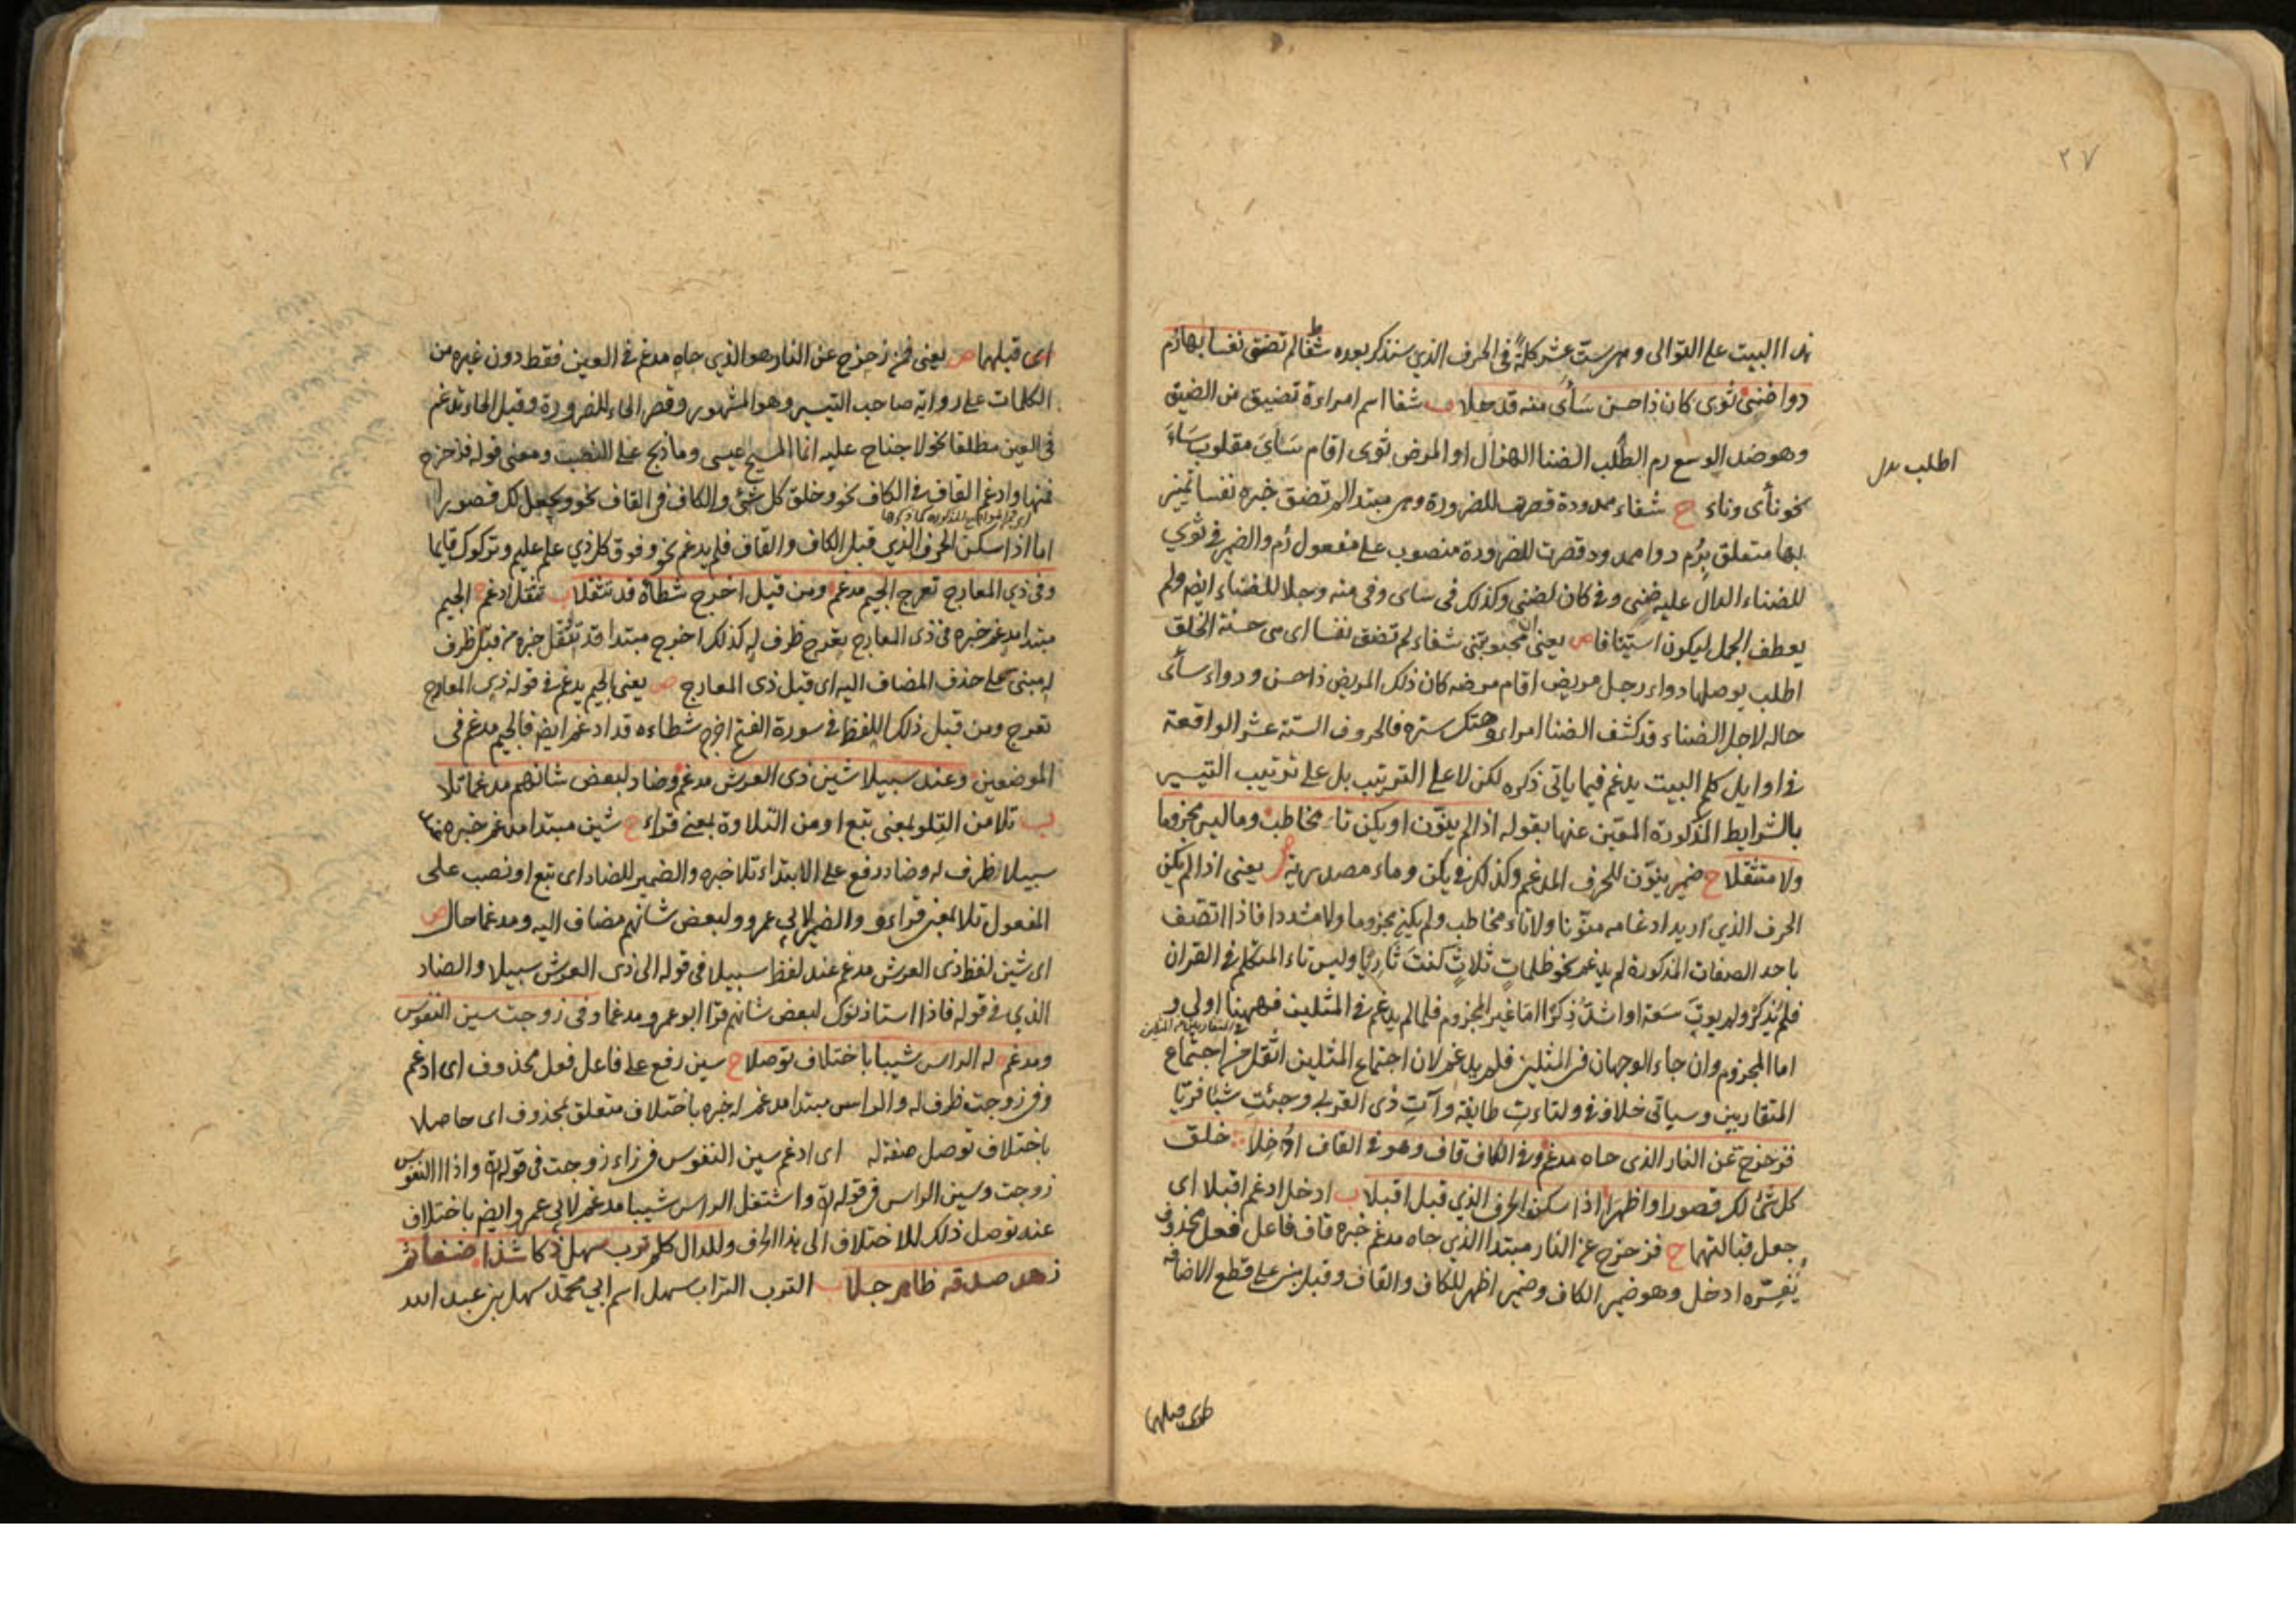 ٢٧
هذا البيت على التوالى وهى ست عشر كلمة فى الحرف الذى سنذكر بعده شفا لم تضق نفسا بها رم
دوا ضنى ثوى كان ذا حسن سأى منه قد جلا ب شفا اسم امراءة تضيق من الضيق
وهو ضد الوسع رم الطلب الضنا الهزال او المرض ثوى اقام سَأَى مقلوب سَاءَ
اطلب بدل
نحو نأى وناء ح شفاء ممدودة قصرت للضرورة وهى مبتدا لم تضق خبره نفسا تميز
بها متعلق بِرُم دوا ممدود قصرت للضرورة منصوب على مفعول رُم والضمير فى ثوى
للضناء الدال عليه ضنى وفى كان لضنى وكذلك فى ساى وفى منه وجلا للضناء ايضا ولم
يعطف الجمل ليكون استينافا ص يعنى ان محبوبتى شفاء لم تضق نفسا اى هى حسنة الخلق
اطلب بوصلها دواء رجل مريض اقام مرضه كان ذلك المريض ذا حسن ورواء ساءى
حاله لاجل الضناء قد كشف الضنا امراءه وهتك ستره فالحروف الستة عشر الواقعة
فى اوايل كلم البيت يدغم فيما ياتى ذكره لكن لا على الترتيب بل على ترتيب التيسير
بالشرايط المذكورة المعيّن عنها بقوله اذا لم ينوّن او يكن تا مخاطب وما ليس مجزوما
ولا متثقلا ح ضمير ينوّن للحرف المدغم وكذلك فى يكن وماء مصدرية ص يعنى اذا لم يكن
الحرف الذى اريد ادغامه منوّنا ولا تاء مخاطب ولم يكن مجزوما ولا مشددا فاذا اتصف
باحد الصفات المذكورة لم يدغم نحو ظلماتٍ ثلاثٍ كنتَ ثَاوِيًا وليس تاء المتكلم فى القران
فلم يُذكر ولم يوتَ سَعة او اشدّ ذِكرًا امّا غير المجزوم فلما لم يدغم فى المثلين فههنا اولى و
فى المتقاربين من المثلين
اما المجزوم وان جاء الوجهان فى المثلين فلم يدغم لان اجتماع المثلين اثقل من اجتماع
المتقاربين وسياتى خلاف فى ولتاءتِ طايفة وآتِ ذى القربى وجئتِ شيئا فريّا
فزحزح عن النار الذى حاه مدغم وفى الكاف قاف وهو فى القاف ادخلا خلق
كل شئ لك قصورا واظهرا اذا سكن الحرف الذى قبل اقبلا ب ادخل ادغم اقبلا اى
جعل قبالتهما ح فزحزح عن النار مبتدا الذى حاه مدغم خبره قاف فاعل فعل محذوف
يُفسّره ادخل وهو ضمير الكاف وضمير اظهر للكاف والقاف وقبل مبنى على قطع الاضافة
اى قبلهما
اى قبلهما ص يعنى فمن زحزح عن النار هو الذى حاه مدغم فى العين فقط دون غيره من
الكلمات على رواية صاحب التيسير وهو المشهور وقصر الحاء للضرورة وقيل الحاء تدغم
فى العين مطلقا نحو لا جناح عليه انما المسيح عيسى وما ذبح على النصب ومعنى قوله فزحزح
فمنها وادغم القاف فى الكاف نحو وخلق كل شئ والكاف فى القاف نحو ويجعل لك قصورا
اما اذا سكن الحرف الذى قبل الكاف والقاف فلم يدغم نحو وفوق كل ذى علم عليم وتركوك قايما
وفى ذى المعارج تعرج الجيم مدغم ومن قبل اخرج شطأه قد تثقلا ب تثقل ادغم ح الجيم
مبتدا مدغم خبره فى ذى المعارج تعرج ظرف له كذلك اخرج مبتدا قد تثقل خبره من قبل ظرف
له مبنى على حذف المضاف اليه اى قبل ذى المعارج ص يعنى الجيم يدغم فى قوله ذى المعارج
تعرج ومن قبل ذلك اللفظ فى سورة الفتح اخرج شطاءه قد ادغم ايضا فالجيم مدغم فى
الموضعين وعند سبيلا شين ذى العرش مدغم وضاد لبعض شانهم مدغما تلا
ب تلا من التلو بمعنى تبع او من التلاوة بمعنى قراء ح شين مبتدا مدغم خبره عند
سبيلا ظرف له وضاد رفع على الابتداء تلا خبره والضمير للضاد اى تبع او نصب على
المفعول تلا بمعنى قراءه والضمير لابى عمرو ولبعض شانهم مضاف اليه ومدغما حال ص
اى شين لفظ ذى العرش مدغم عند لفظ سبيلا فى قوله الى ذى العرش سبيلا والضاد
الذى فى قوله فاذا استاذنوك لبعض شانهم قرا ابو عمرو مدغما وفى زوجت سين النفوس
ومدغم له الراس شيبا باختلاف توصلا ح سين رفع على فاعل فعل محذوف اى ادغم
وفى زوجت ظرف له والراس مبتدا مدغم له خبره باختلاف متعلق بمحذوف اى حاصلا
باختلاف توصل صفة له اى ادغم سين النفوس فى زاء زوجت فى قوله واذا النفوس
زوجت وسين الراس فى قوله واشتعل الراس شيبا مدغم لابى عمرو ايضا باختلاف
عنه توصل ذلك للاختلاف الى هذا الحرف وللدال كلم ترب سهل ذكا شذا ضفا ثم
زهد صدقه ظاهر جلا ب الترب التراب سهل اسم ابى محمد سهل بن عبد الله